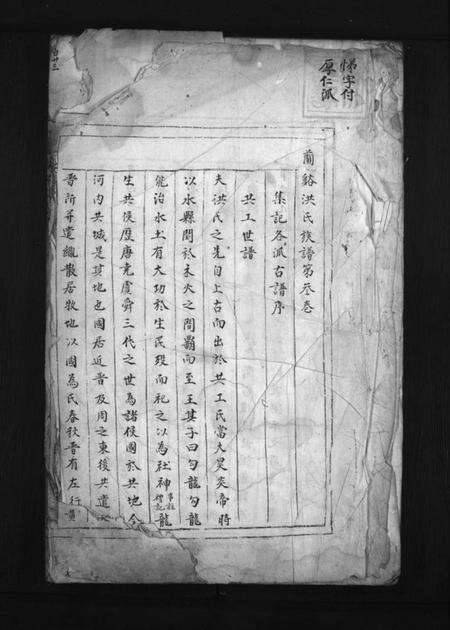 悌字付
厚仁派
蘭谿洪氏族譜第叁卷
集記各派古譜序
共工世譜
夫洪氏之先自上古而出於共工氏當大昊炎帝時
以水縣間於木火之間霸而至王其子曰勾龍勾龍
能治水土有大功於生民歿而祀之以為社神事註禮記龍
生共侯歷唐堯虞舜三代之世為諸侯國於共地今
河内共城是其地也國居近晉及周之東後共遭
晉所并遣繼散居散地以國為氏春秋晉有左行